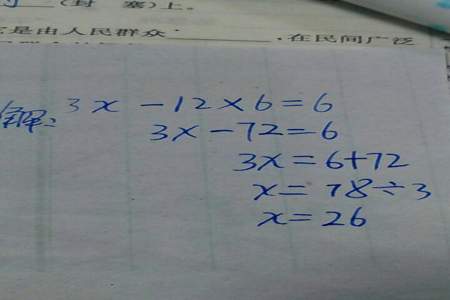 (封 塞)上。
是由人民群众 .在民间广泛
3x-12×6=6
解:
3x-72=6
3x=6+72
x=78÷3
x=26